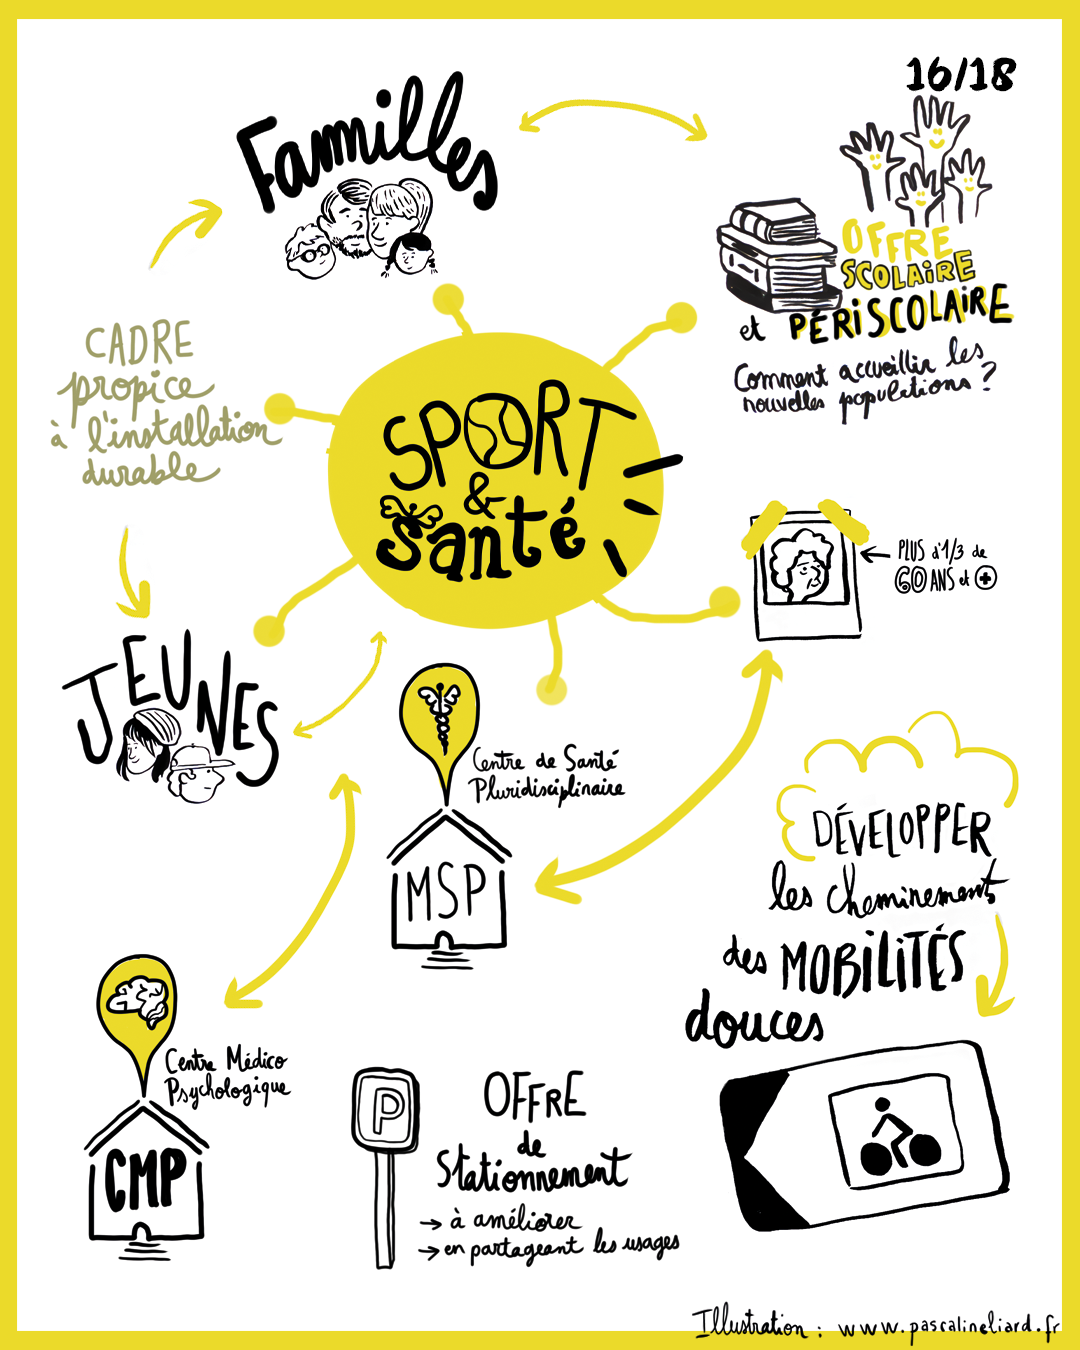 16/18
Familles
OFFRE
SCOLAIRE
et PÉRISCOLAIRE
Comment accueillir les
nouvelles populations ?
CADRE
propice
à l'installation
durable
SPORT
&
Santé
PLUS d'1/3 de
60 ANS et +
JEUNES
Centre de Santé
Pluridisciplinaire
MSP
DÉVELOPPER
les cheminements
des MOBILITÉS
douces
Centre Médico
Psychologique
CMP
P
OFFRE
de
Stationnement
→ à améliorer
→ en partageant les usages
Illustration : www.pascalineliard.fr